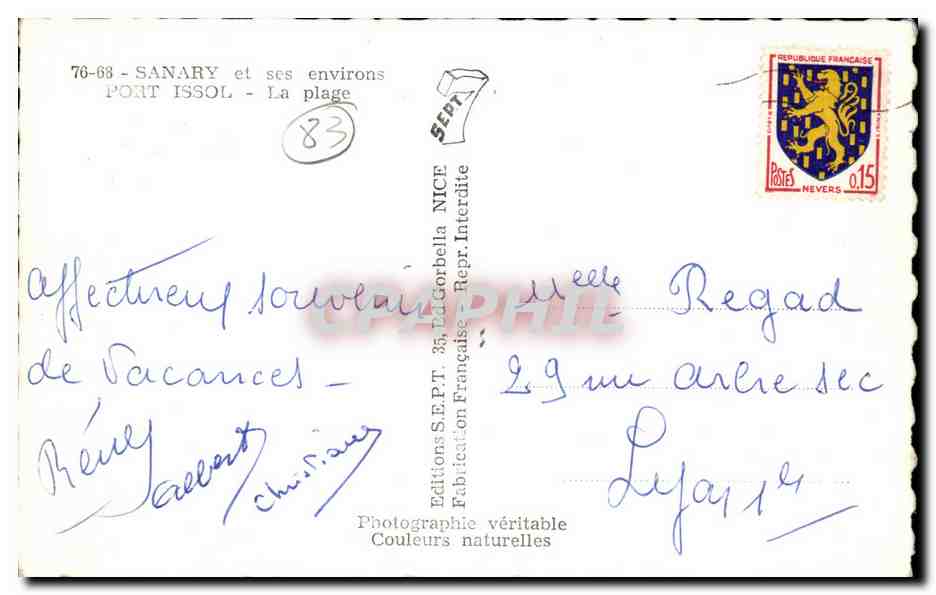 76-68 - SANARY et ses environs
PORT ISSOL - La plage
83
SEPT
REPUBLIQUE FRANÇAISE
POSTES
0,15
NEVERS
Editions S.E.P.T. 35, Bd Gorbella NICE
Fabrication Française - Repr. Interdite
CPAPHIL
Affectueux souvenir
de Vacances -
Christiane
Melle Regad
29 rue arbre sec
Lyon 1er
Photographie véritable
Couleurs naturelles